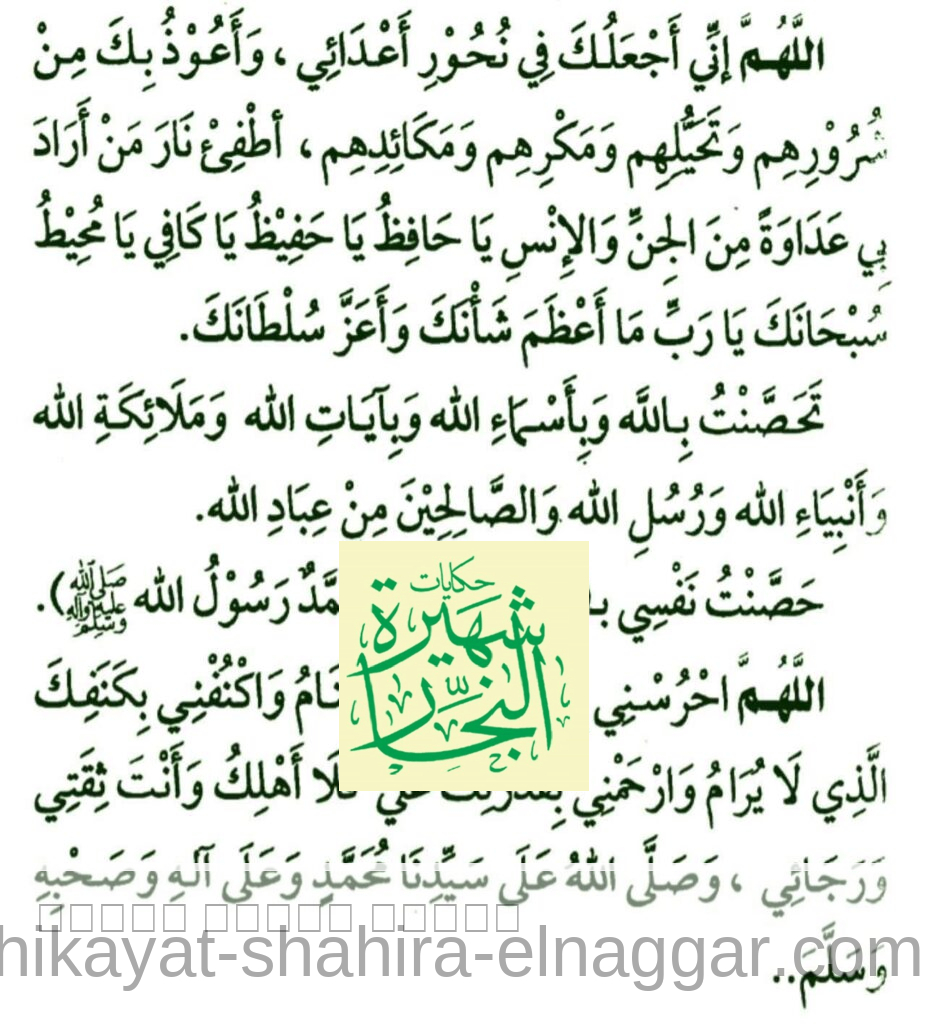 اللَّهُمَّ إنِّي أَجْعَلُكَ فِي نُحُوْرِ أَعْدَائِي ، وَأَعُوْذُ بِكَ مِنْ
شُرُوْرِهِم وَتَحَيُّلِهِم وَمَكْرِهِم وَمَكَائِدِهِم ، أطْفِئْ نَارَ مَنْ أَرَادَ
بِي عَدَاوَةً مِنَ الجِنِّ وَالإِنْسِ يَا حَافِظُ يَا حَفِيْظُ يَا كَافِي يَا مُحِيْطُ
سُبْحَانَكَ يَا رَبِّ مَا أَعْظَمَ شَأْنَكَ وَأَعَزَّ سُلْطَانَكَ.
تَحَصَّنْتُ بِاللَّه وَبِأَسْمَاءِ الله وَبِآيَاتِ الله وَمَلَائِكَةِ الله
وَأَنْبِيَاءِ الله وَرُسُلِ الله وَالصَّالِحِيْنَ مِنْ عِبَادِ الله.
حَصَّنْتُ نَفْسِي رَسُوْلُ الله ﷺ).
اللَّهُمَّ احْرُسْنِي وَاكْنُفْنِي بِكَنَفِكَ
الَّذِي لَا يُرَامُ وَارْحَمْنِي فَلَا أَهْلِكُ وَأَنْتَ ثِقَتِي
وَرَجَائِي ، وَصَلَّى اللهُ عَلَى سَيِّدِنَا مُحَمَّدٍ وَعَلَى آلِهِ وَصَحْبِهِ
وَسَلَّمَ..
حكايات
شهيرة
النجار
hikayat-shahira-elnaggar.com